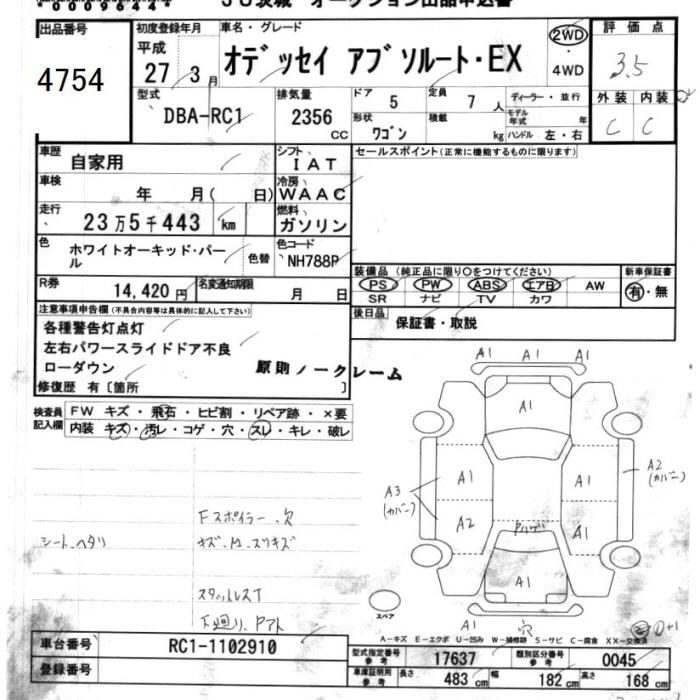 0009644
JU茨城 オークション出品申込書
出品番号
4754
初度登録年月
平成
27 3月
車名・グレード
オデッセイ アブソルート・EX
2WD
4WD
評価点
3.5
型式
DBA-RC1
排気量
2356 CC
ドア 5
定員 7 人
ディーラー・並行
形状 ワゴン
積載 kg
モデル年式 年
ハンドル 左・右
外装 内装
C C
車歴 自家用
シフト IAT
セールスポイント(正常に機能するものに限ります)
車検 年 月( 日)
冷房 WAAC
走行 23万5千443 km
燃料 ガソリン
色 ホワイトオーキッド・パール
色替
色コード NH788P
装備品 (純正品に限り○をつけてください)
新車保証書
PS PW ABS エアB AW
SR ナビ TV カワ
有・無
R券 14,420円
名変通知期限 月 日
後日品 保証書・取説
注意事項申告欄(不具合内容等は具体的に記入して下さい)
各種警告灯点灯
左右パワースライドドア不良
ローダウン
原則ノークレーム
修復歴 有[箇所 ]
検査員記入欄
FW キズ・飛石・ヒビ割・リペア跡・×要
内装 キズ・汚レ・コゲ・穴・スレ・キレ・破レ
A1 A1 A1
A1
A1 A1
A2
(カバー)
A3
(カバー)
A2 A1
A1
A1 穴
シートヘタリ
Fスポイラー、穴
スペア
A-キズ E-エクボ U-凹み W-補修跡 S-サビ C-腐食 XX-交換済
車台番号 RC1-1102910
登録番号
型式指定番号 参考 17637
類別区分番号 参考 0045
車庫証明用 参考 長さ 483 cm 幅 182 cm 高さ 168 cm